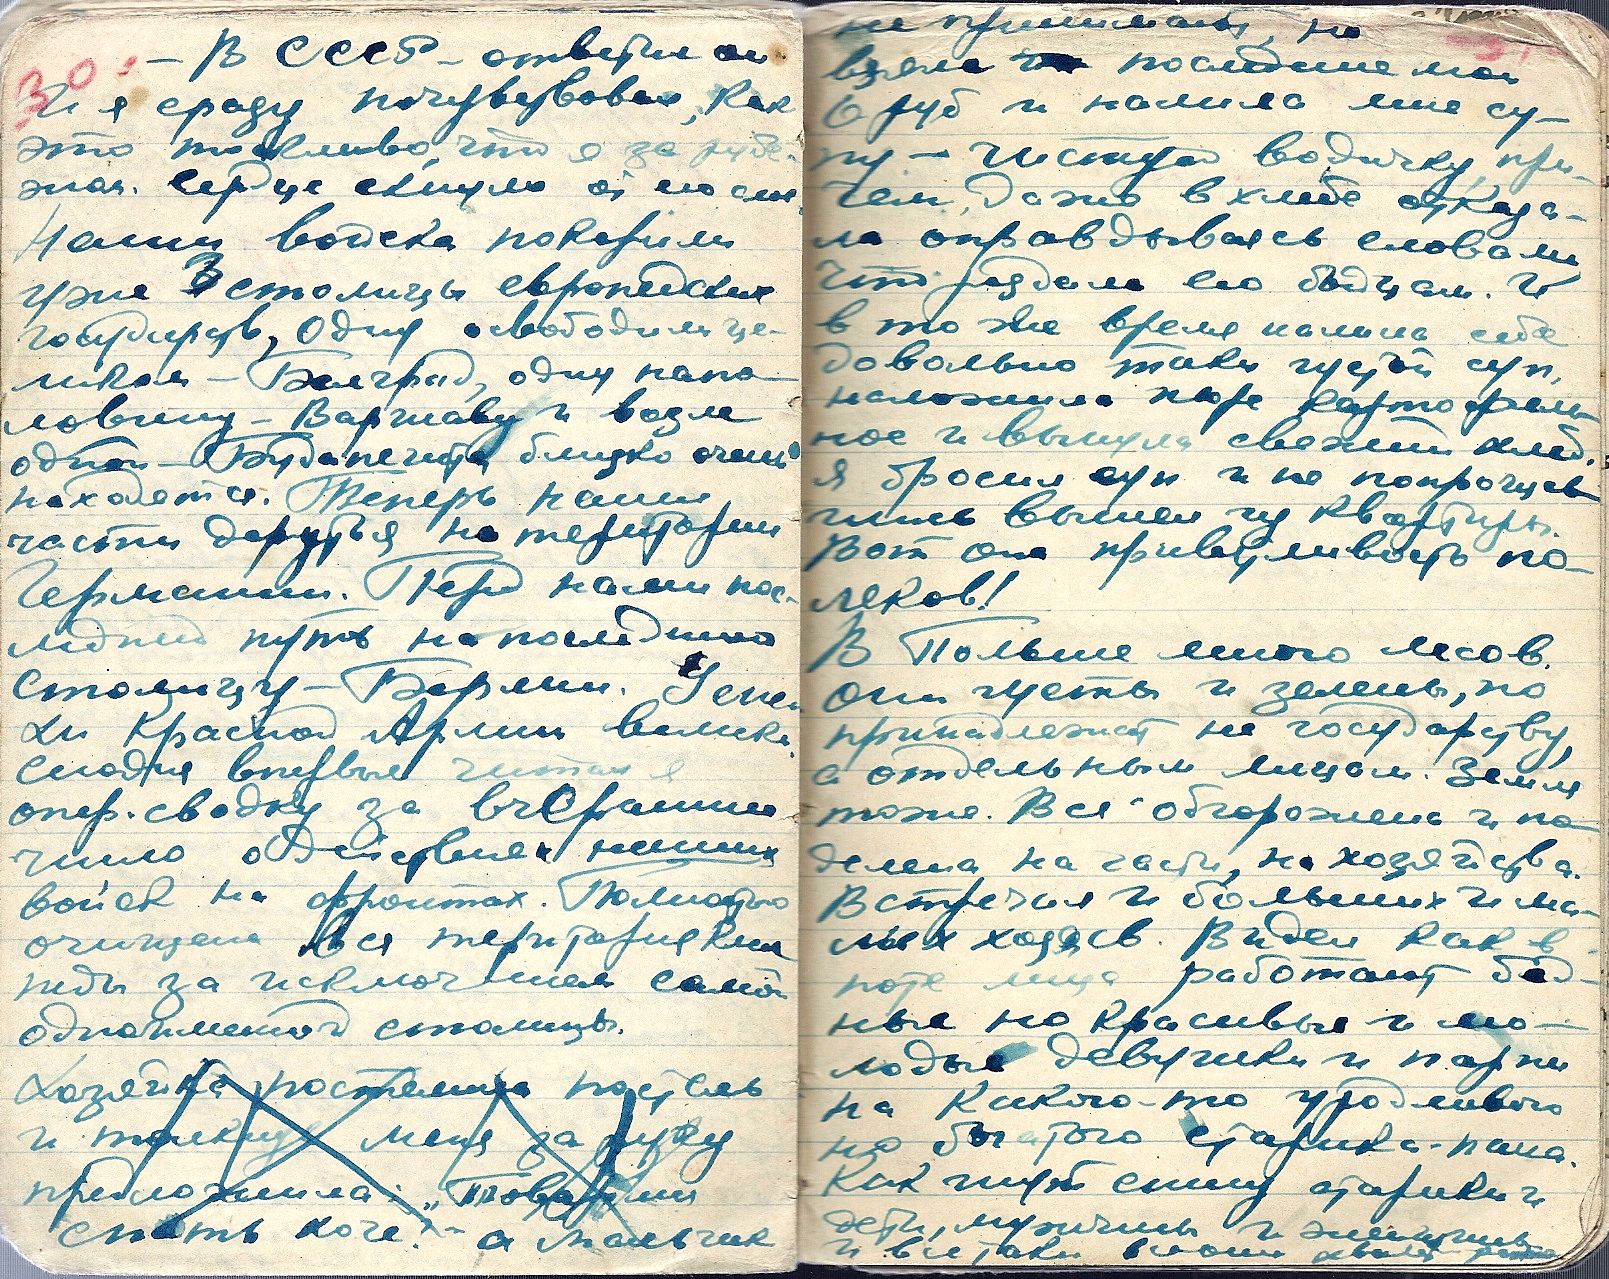 30.
— В СССР — ответил он
И я сразу почувствовал, как
это тоскливо, что я за рубе-
жом. Сердце
Наши войска покорили
уже 3 столицы европейских
государств, одну освободили це-
ликом — Белград, одну напо-
ловину — Варшаву и возле
одной — Будапешта близко очень
находятся. Теперь наши
части дерутся на територии
Германии. Перед нами пос-
ледний путь на последнюю
столицу — Берлин. Успе-
хи Красной Армии велики.
Сегодня впервые читал я
опер. сводку за вчерашнее
число о действиях наших
войск на фронтах. Полностью
очищена вся територия
за исключением самой
одноименной столицы.
Хозяйка постелила постель
и меня за руку
предложила: „Товариш
спать хоче." — а мальчик
не принимать, но
взяла последние мои
6 руб и налила мне су-
пу — чистую водичку, при-
чем, даже в хлебе отказа-
ла оправдываясь словами
что раздала его бойцам. И
в то же время налила себе
довольно таки густой суп,
наложила пюре картофель-
ное и вынула свежий хлеб.
Я бросил суп и не попрощав-
шись вышел из квартиры.
Вот она приветливость по-
ляков!
В Польше много лесов.
Они густы и зелены, но
принадлежат не государству,
а отдельным лицам. Земля
тоже. Все обгорожена и по-
делена на части, на хозяйства.
Встречал и больших и ма-
лых хозяев. Видел как в
поте лица работают бед-
ные но красивые и мо-
лодые девушки и парни
на какого-то уродливого
но богатого старика-пана.
Как гнут спину старики и
дети, мужчины и женщины
и все таки